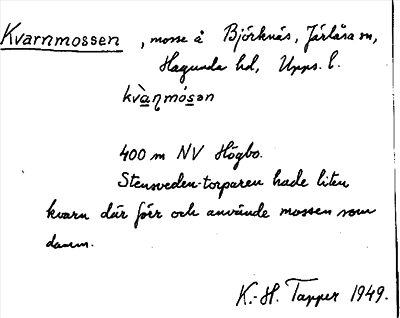 Kvarnmossen, mosse å Björknäs, Järlåsa sn,
Hagunda hd, Upps. l.
kvàṇmós̱ən
400 m NV Högbo.
Stensveden-torparen hade liten
kvarn där förr och använde mossen som
damm.
K.-H. Tapper 1949.